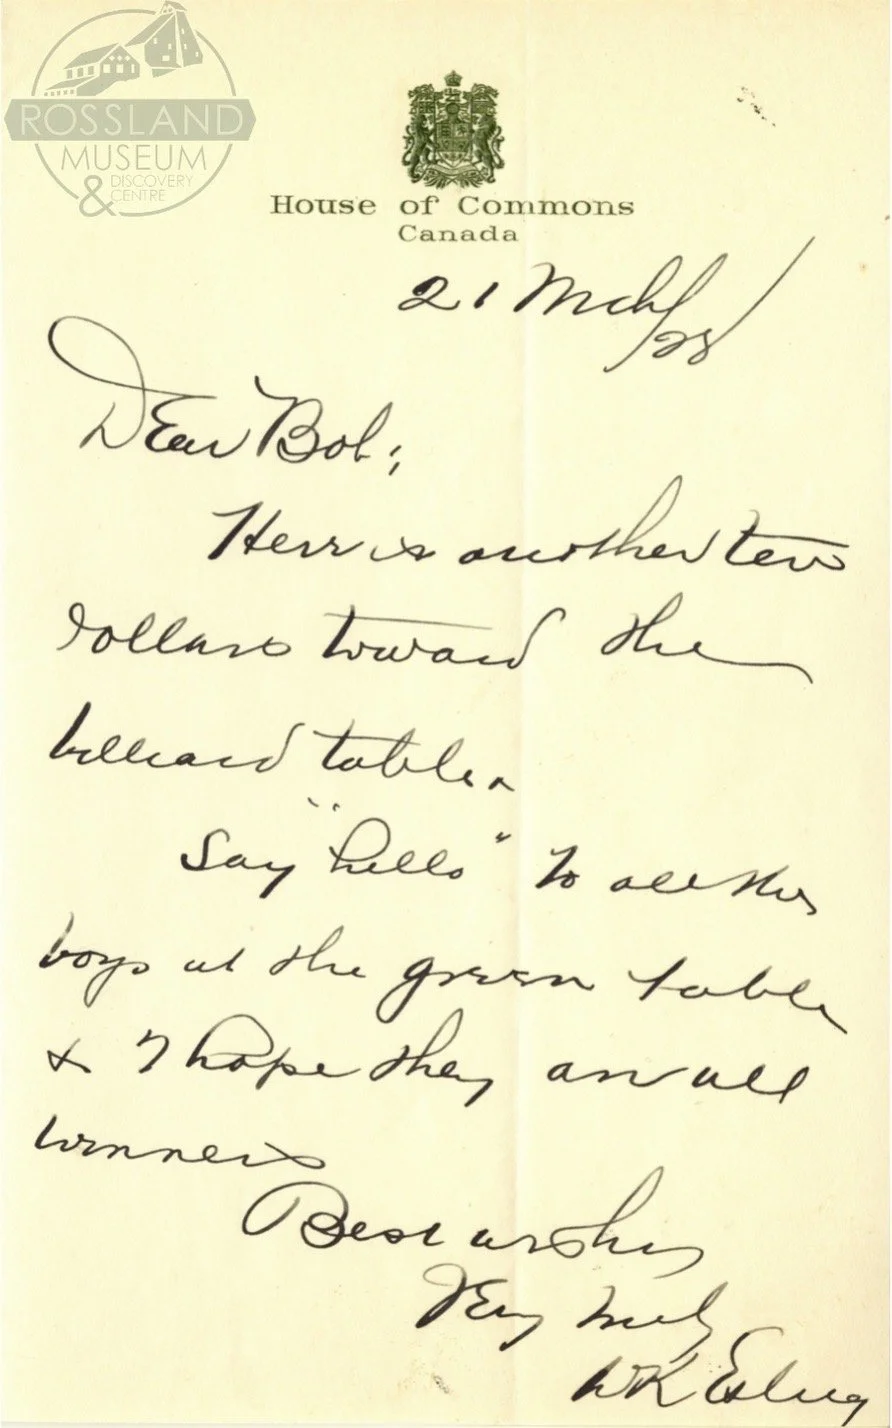 ROSSLAND
MUSEUM
& DISCOVERY
CENTRE
House of Commons
Canada
21 Mch/28
Dear Bob;
Here is another ten
dollars toward the
billiard table.
Say "hello" to all the
boys at the green table
& I hope they are all
winners
Best wishes
Very truly
WK Esling